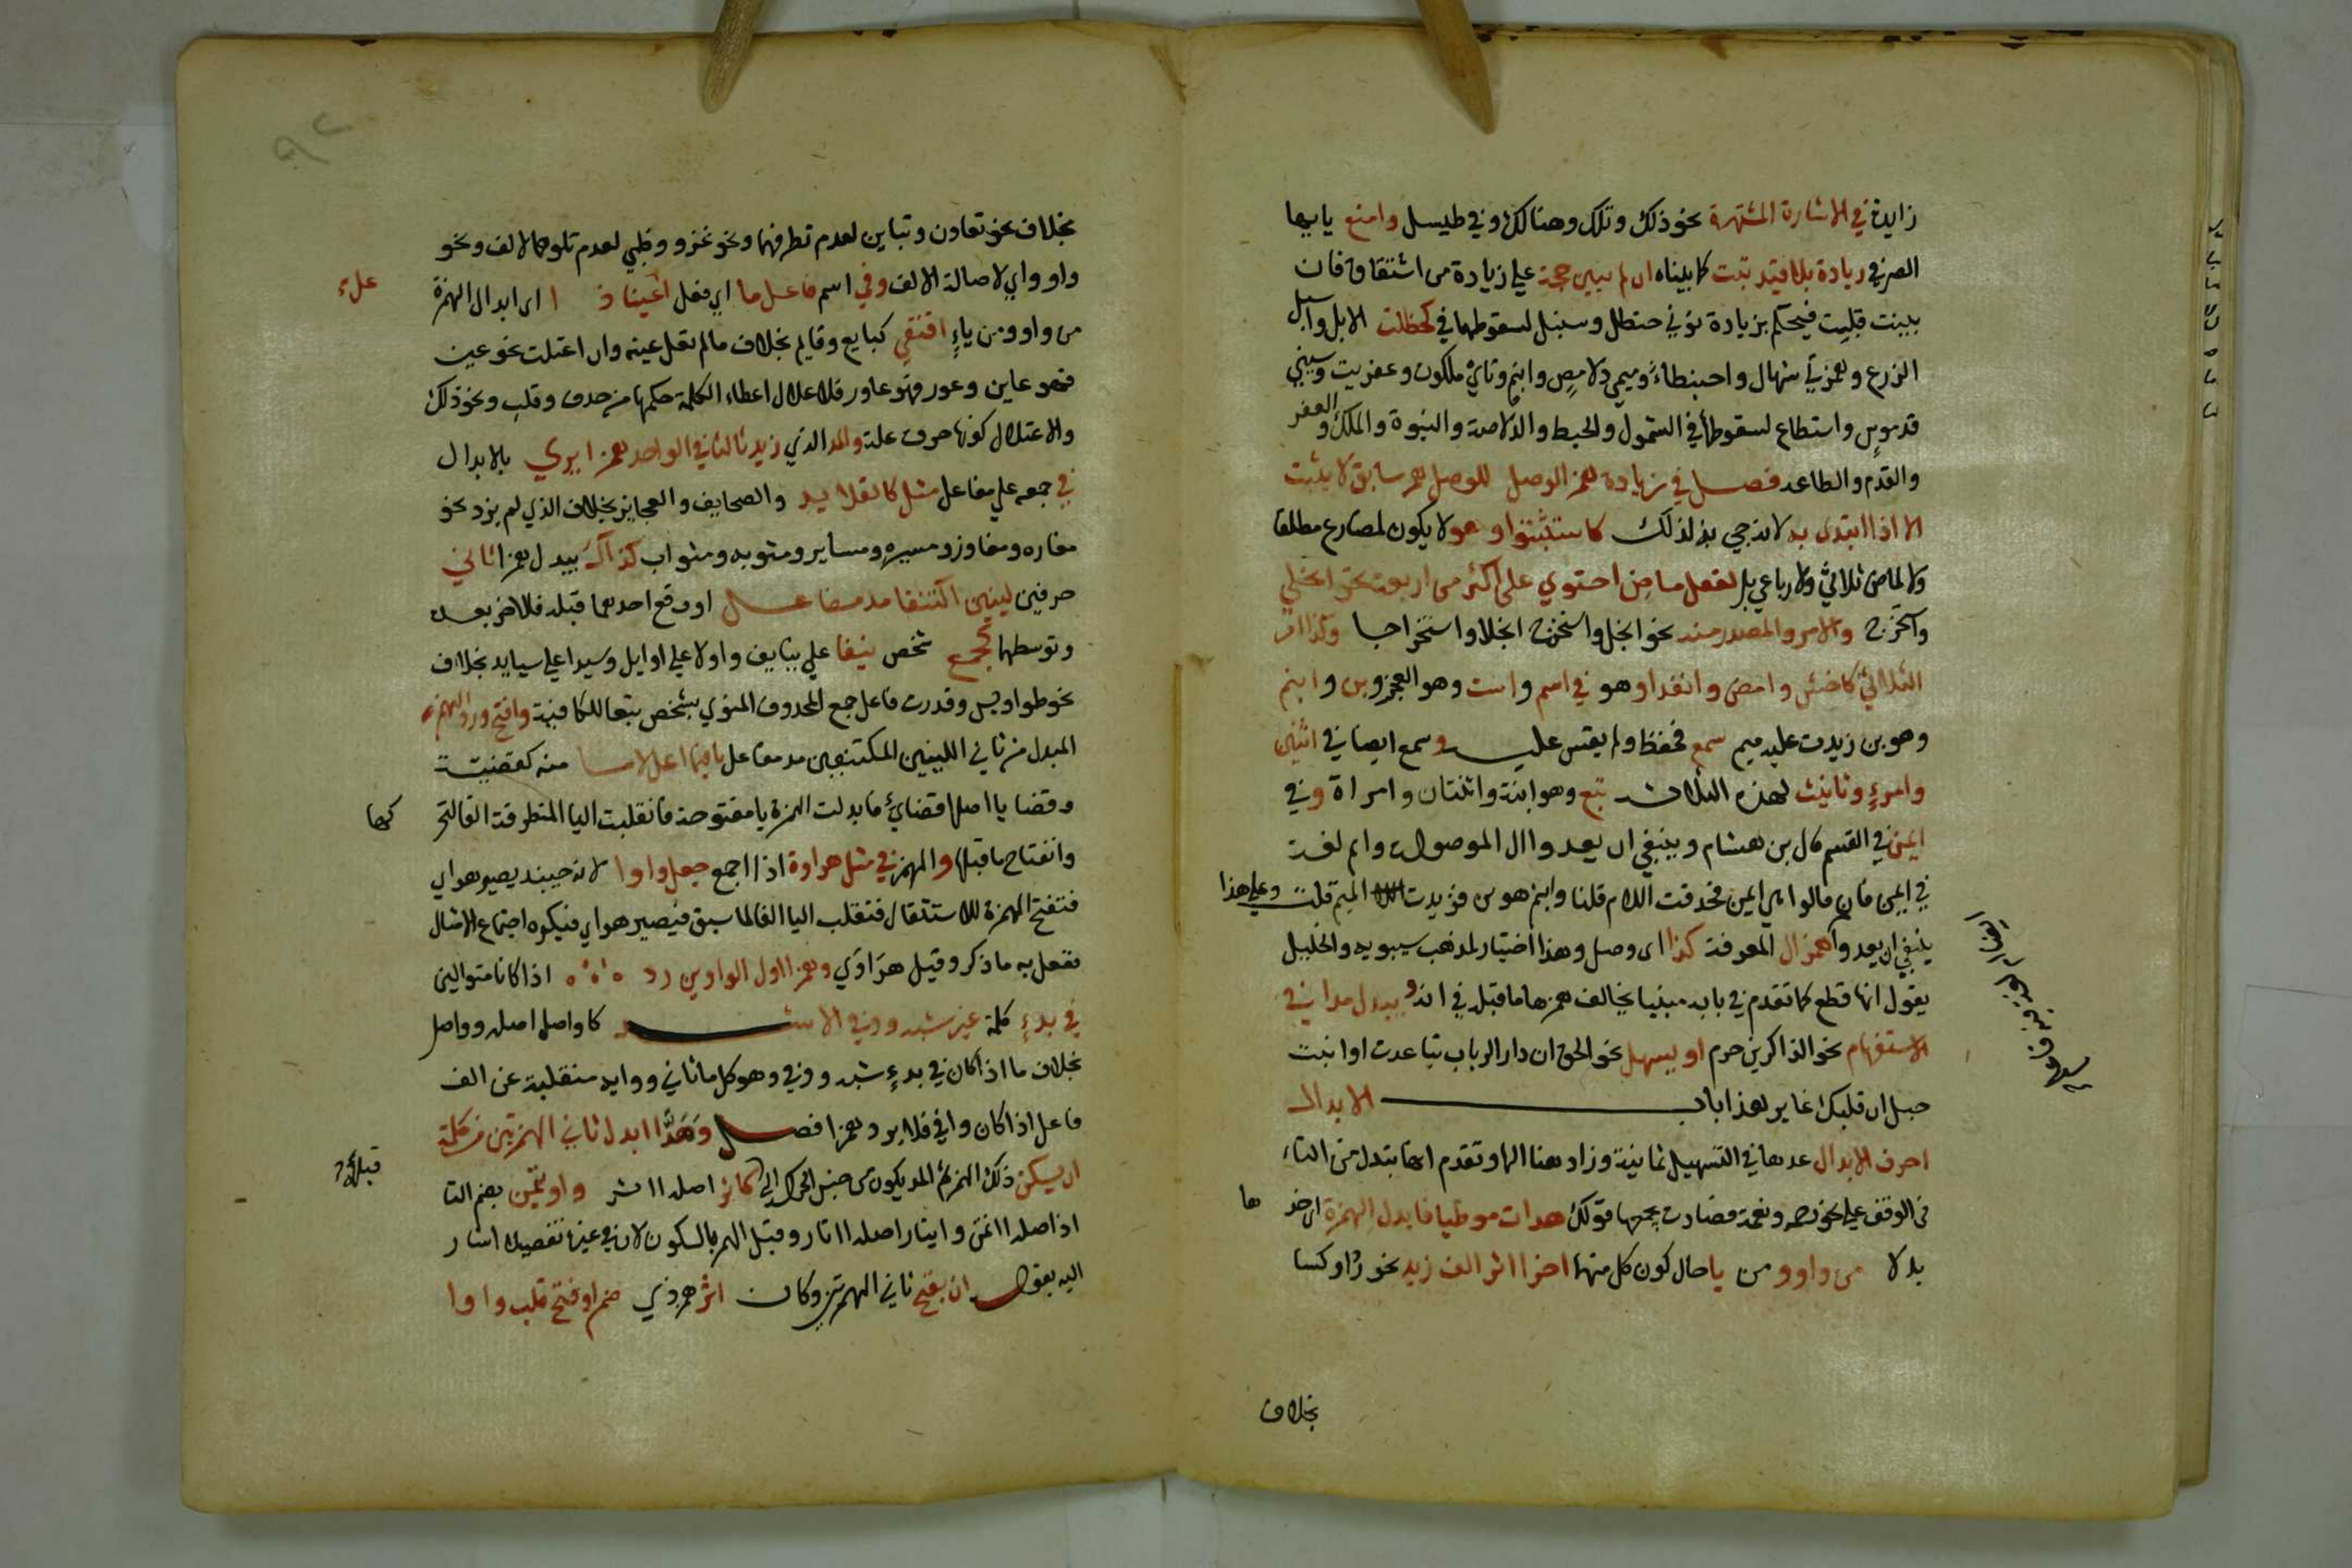 زايدة في الاشارة المشتهرة نحو ذلك وتلك وهنالك وفي طيسل وامنع يا ايها
الصرفي زيادة بلا قيد ثبت كما بيناه ان لم تبين حجة على زيادة من اشتقاق فان
بينت قبلت فيحكم بزيادة نوني حنظل وسنبل لسقوطهما في كحظلت الابل واسبل
الزرع وهمزتي شمال واحبنطاء وميمي دلامص وابنم وتائي ملكوت وعفريت وسيني
قدموس واستطاع لسقوطها في الشمول والحبط والدلاصة والبنوة والملك والعفر
والقدم والطاعة فصل في زيادة همز الوصل للوصل همز سابق لا يثبت
الا اذا ابتدى به لانه جي به لذلك كاستثبتوا وهو لا يكون لمضارع مطلقا
ولا لماض ثلاثي ولا رباعي بل لفعل ماض احتوي على اكثر من اربعة نحو انجلي
واستخرج والامر والمصدر منه نحو انجل واستخرج انجلا واستخراجا وكذا امر
الثلاثي كاخش وامض وانفذا وهو في اسم واست وهو العجز وبن وابنم
وهو بن زيدت عليه ميم سمع فحفظ ولم يقس عليه وسمع ايضا في اثنين
وامرئ وتانيث لهذه الثلاث تبع وهو ابنة واثنتان وامراة وفي
ايمن في القسم قال بن هشام وينبغي ان يعدوا ال الموصولة وايم لغة
في ايمن فان قالوا هي ايمن فحذفت اللام قلنا وابنم هو بن فزيدت الميم قلت وعلى هذا
ينبغي ان يعدوا همز ال المعرفة كذا اى وصل وهذا اختيار لمذهب سيبويه والخليل
يقول انها قطع كما تقدم في بابه مبنيا يخالف همزها ما قبله في انه ويبدل مدا في
الاستفهام نحو الذاكرين حرم او يسهل نحو الحق ان دار الرباب تباعدت او انبت
حبل ان قلبك طاير هذا باب الابدال
احرف الابدال عدها في التسهيل ثمانية وزاد هنا الها وتقدم انها تبدل من التاء
في الوقف على نحو رحمة ونعمة فصارت يجمعها قولك هدات موطيا فابدل الهمزة اى خذ ها
بدلا من واو ومن يا حال كون كل منهما اخرا اثر الف زيد نحو رداو كسا
بخلاف
٩٢
بخلاف نحو تعاون وتباين لعدم تطرفهما ونحو غزو وظبي لعدم تلوهما الالف ونحو
واو واي لاصالة الالف وفي اسم فاعل ما اي فعل اعل عينا ذا اى ابدال الهمزة
من واو ومن ياء اقتفي كبايع وقايم بخلاف ما لم تعل عينه وان اعتلت نحو عين
فهو عاين وعور فهو عاور فالاعلال اعطاء الكلمة حكمها من حذف وقلب ونحو ذلك
والاعتلال كونها حرف علة والمد الذي زيد ثالثا في الواحد همزا يري بالابدال
في جمعه علي مفاعل مثل كالقلايد والصحايف والعجايز بخلاف الذي لم يزد نحو
مفازه ومفاوز ومسيره ومساير ومثوبه ومثواب كذاك يبدل همزا ثاني
حرفين لينين اكتنفا مد مفاعل او وقع احدهما قبله فالاخر بعده
وتوسطهما كجمع شخص نيفا علي نيايف واولا علي اوايل وسيدا علي سيايد بخلاف
نحو طواويس وقدرت فاعل جمع المحذوف المنوي بشخص تبعا للكافية وافتح ورد الهمز
المبدل من ثاني اللينين المكتنفين مد مفاعل يا فيما اعل لاما منه كقضية
وقضايا اصلها قضائي فابدلت الهمزة يا مفتوحة فانقلبت اليا المتطرفة الفا لتحركها
وانفتاح ما قبلها والهمز في مثل هراوة اذا جمع جعل واوا لانه حينيذ يصير هراي
فتفتح الهمزة للاستثقال فتقلب اليا الفا لما سبق فيصير هراي فيكره اجتماع الامثال
فعل به ما ذكر وقيل هراوي وهمزا اول الواوين رد اذا كانا متوالين
في بدء كلمة غير شبه ووفي الاشد كاواصل اصله وواصل
بخلاف ما اذا كان في بدء شبه ووفي وهو كل ما ثاني ووايه منقلبة عن الف
فاعل اذا كان وافي فلا يرد همزا فصل ومدا ابدل ثاني الهمزتين من كلمة
ان يسكن ذلك الهمز ثم المد يكون من جنس الحركة التي قبله كاثر اصله ااثر واوتمن بضم التا
اذ اصله ااتمن وايثار اصله ااثار وقيل الهمز بالسكون لان في غيره تفصيلا اشار
اليه بقوله ان يفتح ثاني الهمزتين وكان اثر همز ذي ضم او فتح قلب واوا